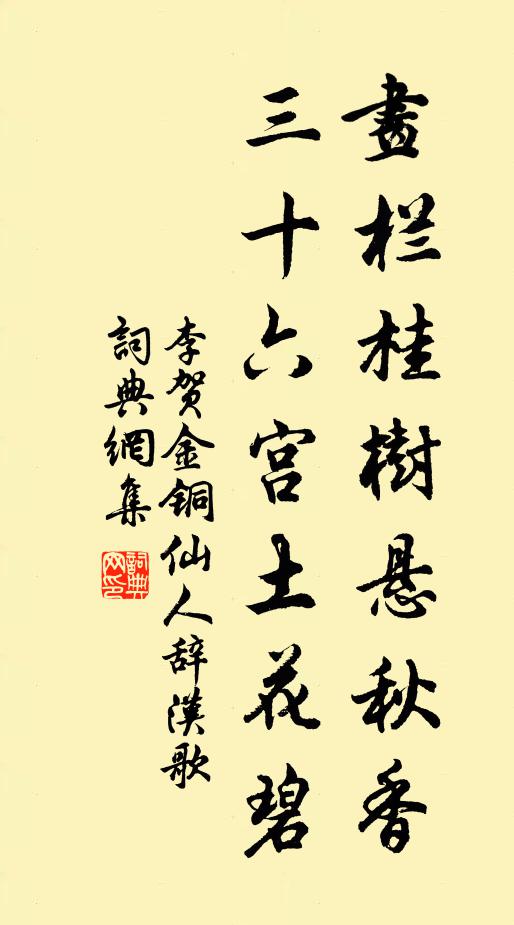 畫栏桂樹悬秋香
三十六宫土花碧
李贺金铜仙人辞漢歌
詞典網集
詞典网印